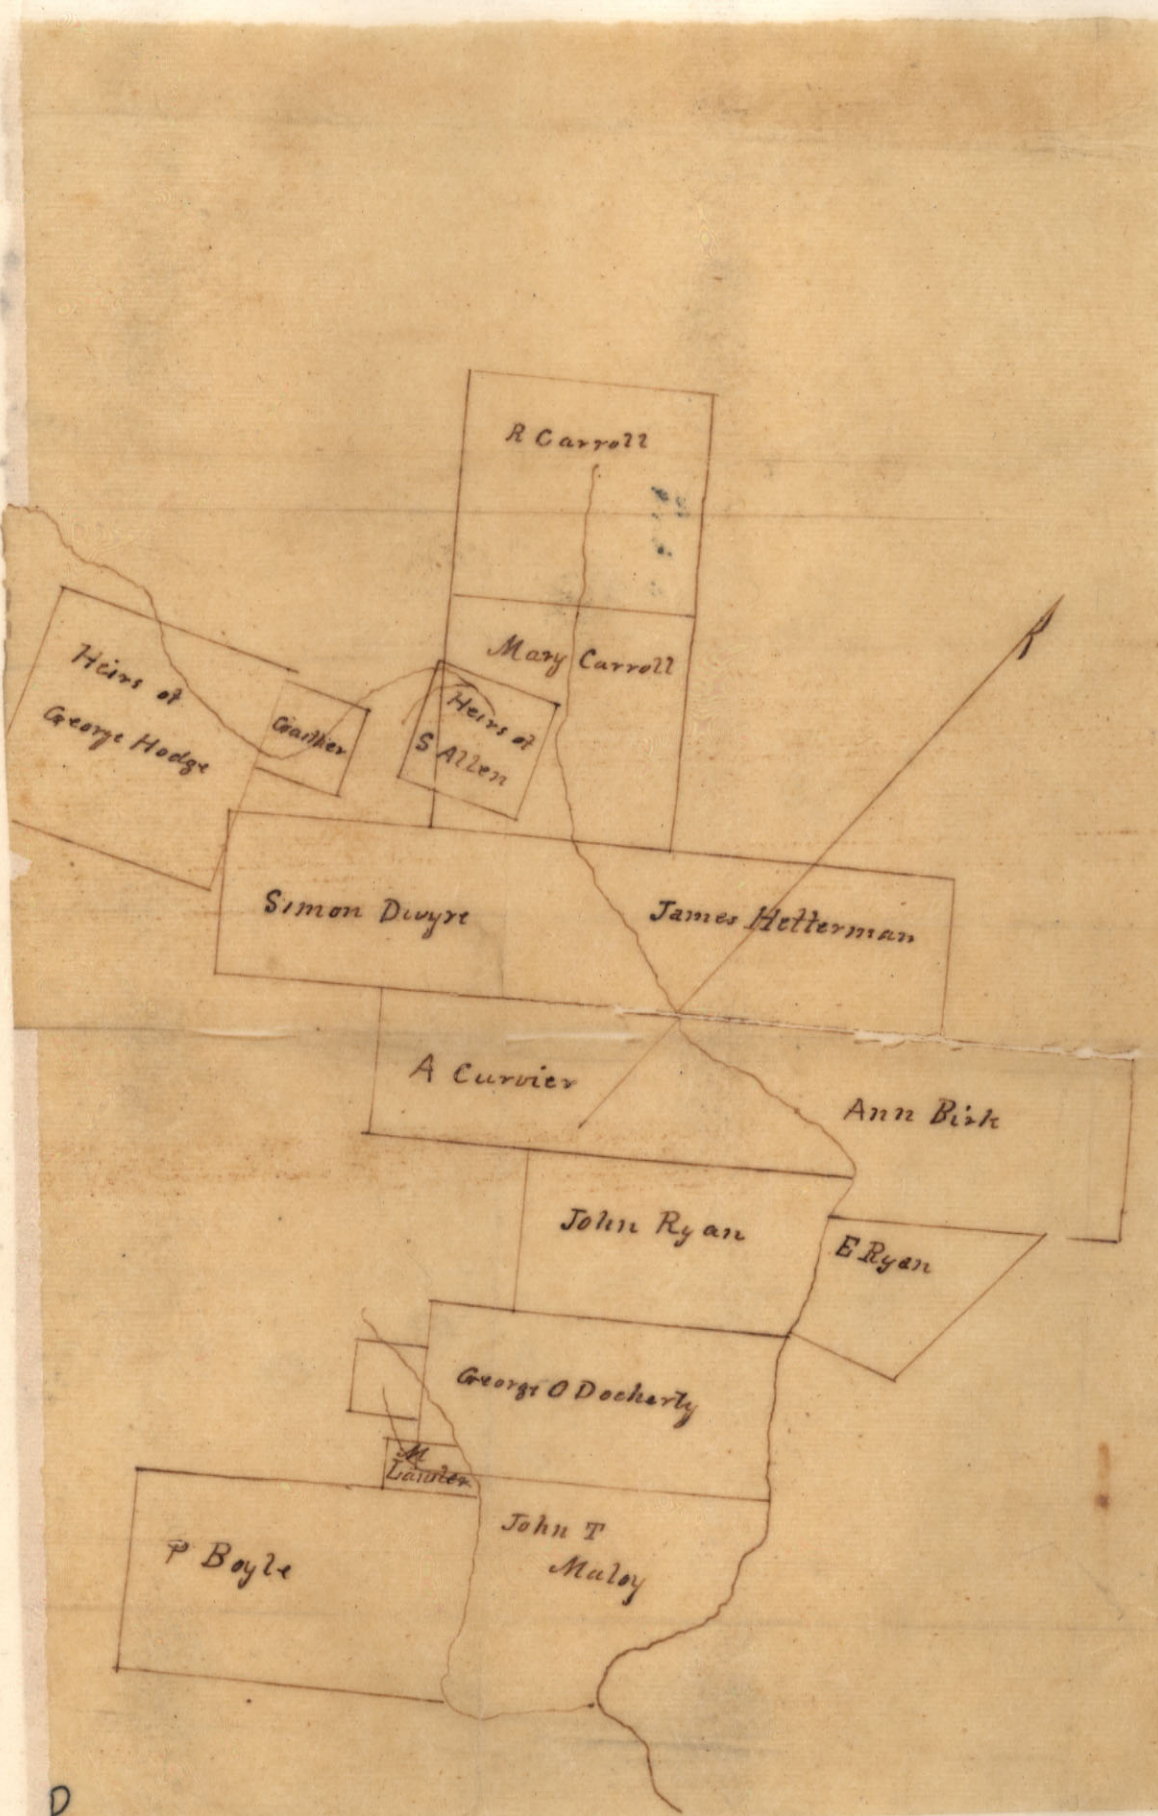 R Carroll
Mary Carroll
Heirs of
George Hodge
Gaither
Heirs of
S Allen
Simon Dwyre
James Hetterman
A Curvier
Ann Birk
John Ryan
E Ryan
George O Docherty
M
Lawler
P Boyle
John T
Maloy
D